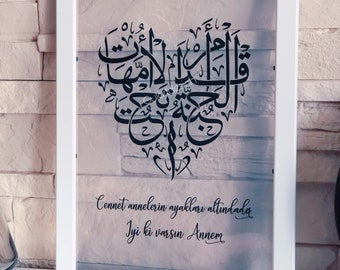 الجنة تحت
أقدام الأمهات
Cennet annelerin ayakları altındadır
İyi ki varsın Annem